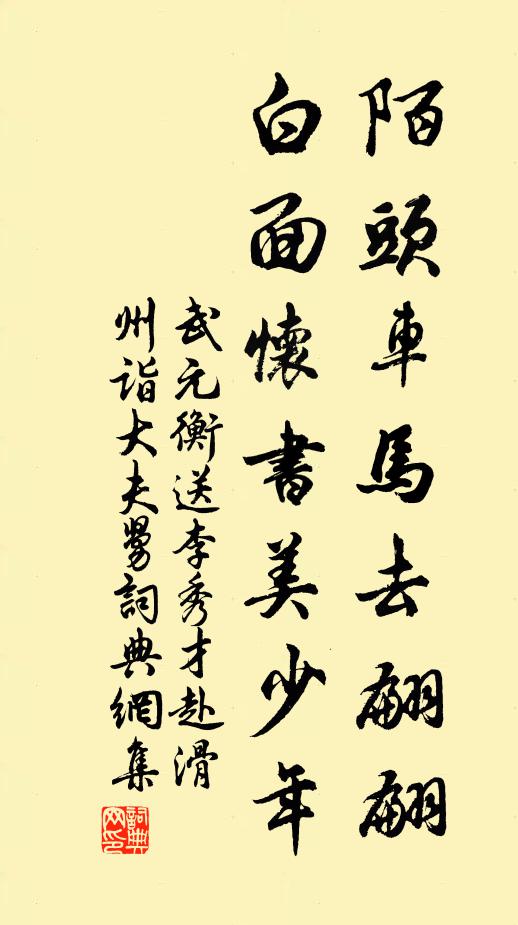 陌頭車馬去翩翩
白面懷書美少年
武元衡送李秀才赴滑
州詣大夫舅詞典網集
詞典
网印